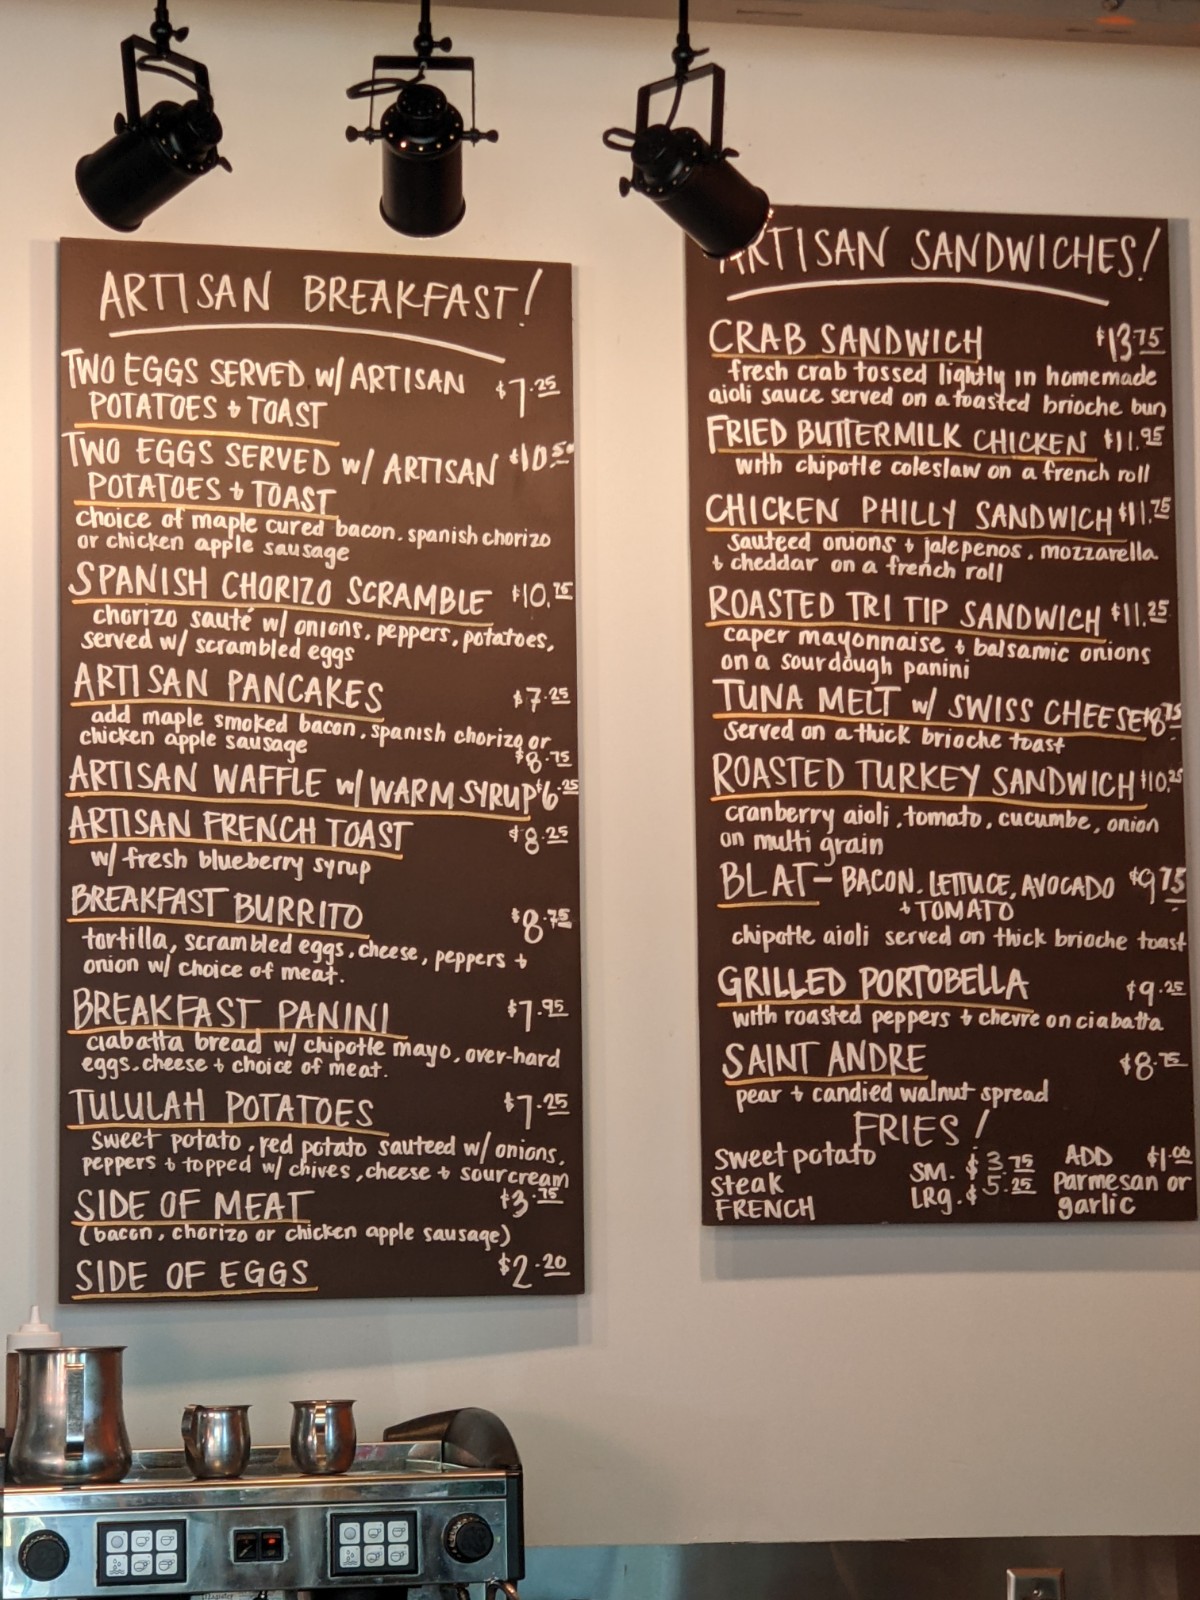 ARTISAN BREAKFAST!
TWO EGGS SERVED w/ ARTISAN $7.25
POTATOES & TOAST
TWO EGGS SERVED w/ ARTISAN $10.50
POTATOES & TOAST
choice of maple cured bacon, spanish chorizo
or chicken apple sausage
SPANISH CHORIZO SCRAMBLE $10.75
chorizo sauté w/ onions, peppers, potatoes,
served w/ scrambled eggs
ARTISAN PANCAKES $7.25
add maple smoked bacon, spanish chorizo or
chicken apple sausage $8.75
ARTISAN WAFFLE w/ WARM SYRUP $6.25
ARTISAN FRENCH TOAST $8.25
w/ fresh blueberry syrup
BREAKFAST BURRITO $8.75
tortilla, scrambled eggs, cheese, peppers &
onion w/ choice of meat.
BREAKFAST PANINI $7.95
ciabatta bread w/ chipotle mayo, over-hard
eggs, cheese & choice of meat.
TULULAH POTATOES $7.25
sweet potato, red potato sauteed w/ onions,
peppers & topped w/ chives, cheese & sour cream
SIDE OF MEAT $3.75
(bacon, chorizo or chicken apple sausage)
SIDE OF EGGS $2.20
ARTISAN SANDWICHES!
CRAB SANDWICH $13.75
fresh crab tossed lightly in homemade
aioli sauce served on a toasted brioche bun
FRIED BUTTERMILK CHICKEN $11.95
with chipotle coleslaw on a french roll
CHICKEN PHILLY SANDWICH $11.75
sauteed onions & jalepenos, mozzarella
& cheddar on a french roll
ROASTED TRI TIP SANDWICH $11.25
caper mayonnaise & balsamic onions
on a sourdough panini
TUNA MELT w/ SWISS CHEESE $8.75
served on a thick brioche toast
ROASTED TURKEY SANDWICH $10.25
cranberry aioli, tomato, cucumbe, onion
on multi grain
BLAT - BACON, LETTUCE, AVOCADO $9.75
& TOMATO
chipotle aioli served on thick brioche toast
GRILLED PORTOBELLA $9.25
with roasted peppers & chevre on ciabatta
SAINT ANDRE $8.75
pear & candied walnut spread
FRIES!
sweet potato SM. $3.75 ADD $1.00
steak LRg. $5.25 parmesan or
FRENCH garlic